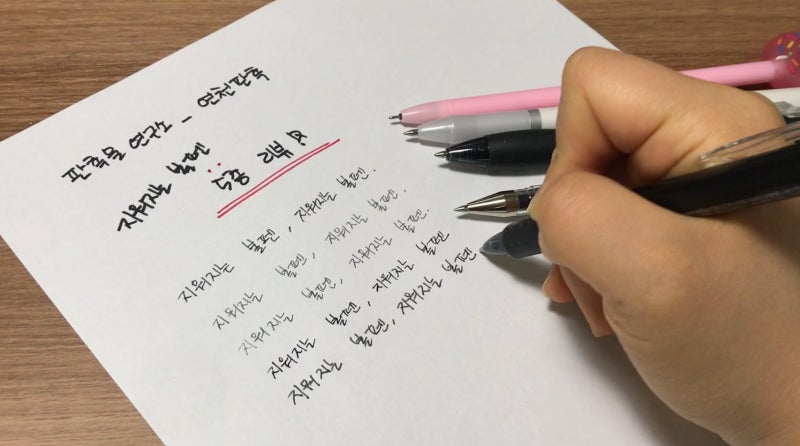 판촉물 연구소 - 연천판촉
지워지는 볼펜
5종 리뷰
지워지는 볼펜, 지워지는 볼펜.
지워지는 볼펜, 지워지는 볼펜.
지워지는 볼펜, 지워지는 볼펜.
지워지는 볼펜, 지워지는 볼펜
지워지는 볼펜, 지워지는 볼펜